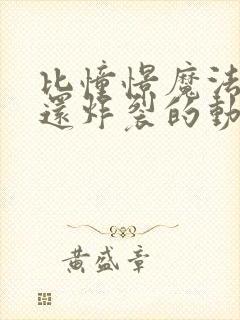 比憧憬魔法
還炸裂的動
黃盛章